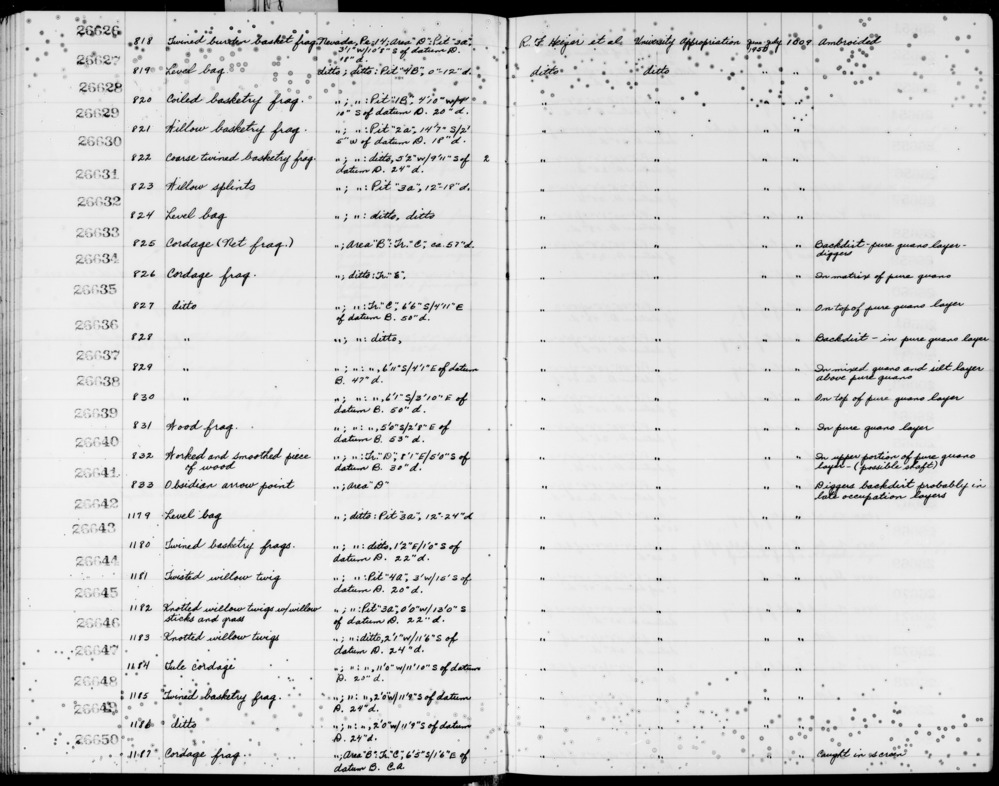 26626
818 Twined burden basket frag. Nevada, Pe-14; Area "D": Pit "3a", R. F. Heizer et al. University Appropriation June-July 1809 Ambroided
3'1" W/10'8" S of datum D. 1950
18" d.
26627
819 Level bag ditto; ditto: Pit "4B", 0"-12" d. ditto ditto " "
26628
820 Coiled basketry frag. "; ": Pit "1B", 4'10" W/4' " " " "
10" S of datum D. 20" d.
26629
821 Willow basketry frag. "; ": Pit "2a", 14'7" S/2' " " " "
5" W of datum D. 18" d.
26630
822 Coarse twined basketry frag. "; ": ditto, 5'2" W/9'11" S of 2 " " " "
datum D. 24" d.
26631
823 Willow splints "; ": Pit "3a", 12"-18" d. " " " "
26632
824 Level bag "; ": ditto, ditto " " " "
26633
825 Cordage (Net frag.) "; Area "B": Tr. "C", ca. 57" d. " " " " Backdirt - pure guano layer -
diggers
26634
826 Cordage frag. "; ditto: Tr. "E", " " " " In matrix of pure guano
26635
827 ditto "; ": Tr. "C", 6'6" S/4'11" E " " " " On top of pure guano layer
of datum B. 50" d.
26636
828 " "; ": ditto, " " " " Backdirt - in pure guano layer
26637
829 " "; ": ", 6'11" S/4'1" E of datum " " " " In mixed guano and silt layer
B. 47" d. above pure guano
26638
830 " "; ": ", 6'1" S/3'10" E of " " " " On top of pure guano layer
datum B. 50" d.
26639
831 Wood frag. "; ": ", 5'0" S/2'8" E of " " " " In pure guano layer
datum B. 53" d.
26640
832 Worked and smoothed piece "; ": Tr. "D", 8'1" E/5'0" S of " " " " In upper portion of pure guano
of wood datum B. 30" d. layer - (possible shaft)
26641
833 Obsidian arrow point "; Area "D" " " " " Diggers backdirt probably in
late occupation layers
26642
1179 Level bag "; ditto: Pit "3a", 12"-24" d " " " "
26643
1180 Twined basketry frags. "; ": ditto, 1'2" E/1'0" S of " " " "
datum D. 22" d.
26644
1181 Twisted willow twig "; ": Pit "4a", 3' W/15' S of " " " "
datum D. 20" d.
26645
1182 Knotted willow twigs w/willow "; ": Pit "3a", 0'0" W/13'0" S " " " "
sticks and grass of datum D. 22" d.
26646
1183 Knotted willow twigs "; ": ditto, 2'1" W/11'6" S of " " " "
datum D. 24" d.
26647
1184 Tule cordage "; ": ", 11'0" W/11'10" S of datum " " " "
D. 20" d.
26648
1185 Twined basketry frag. "; ": ", 2'0" W/11'9" S of datum " " " "
D. 24" d.
26649
1186 ditto "; ": ", 2'0" W/11'9" S of datum " " " "
D. 24" d.
26650
1187 Cordage frag. "; Area "B": Tr. "C", 6'5" S/1'6" E of " " " " Caught in screen
datum B. C.A.